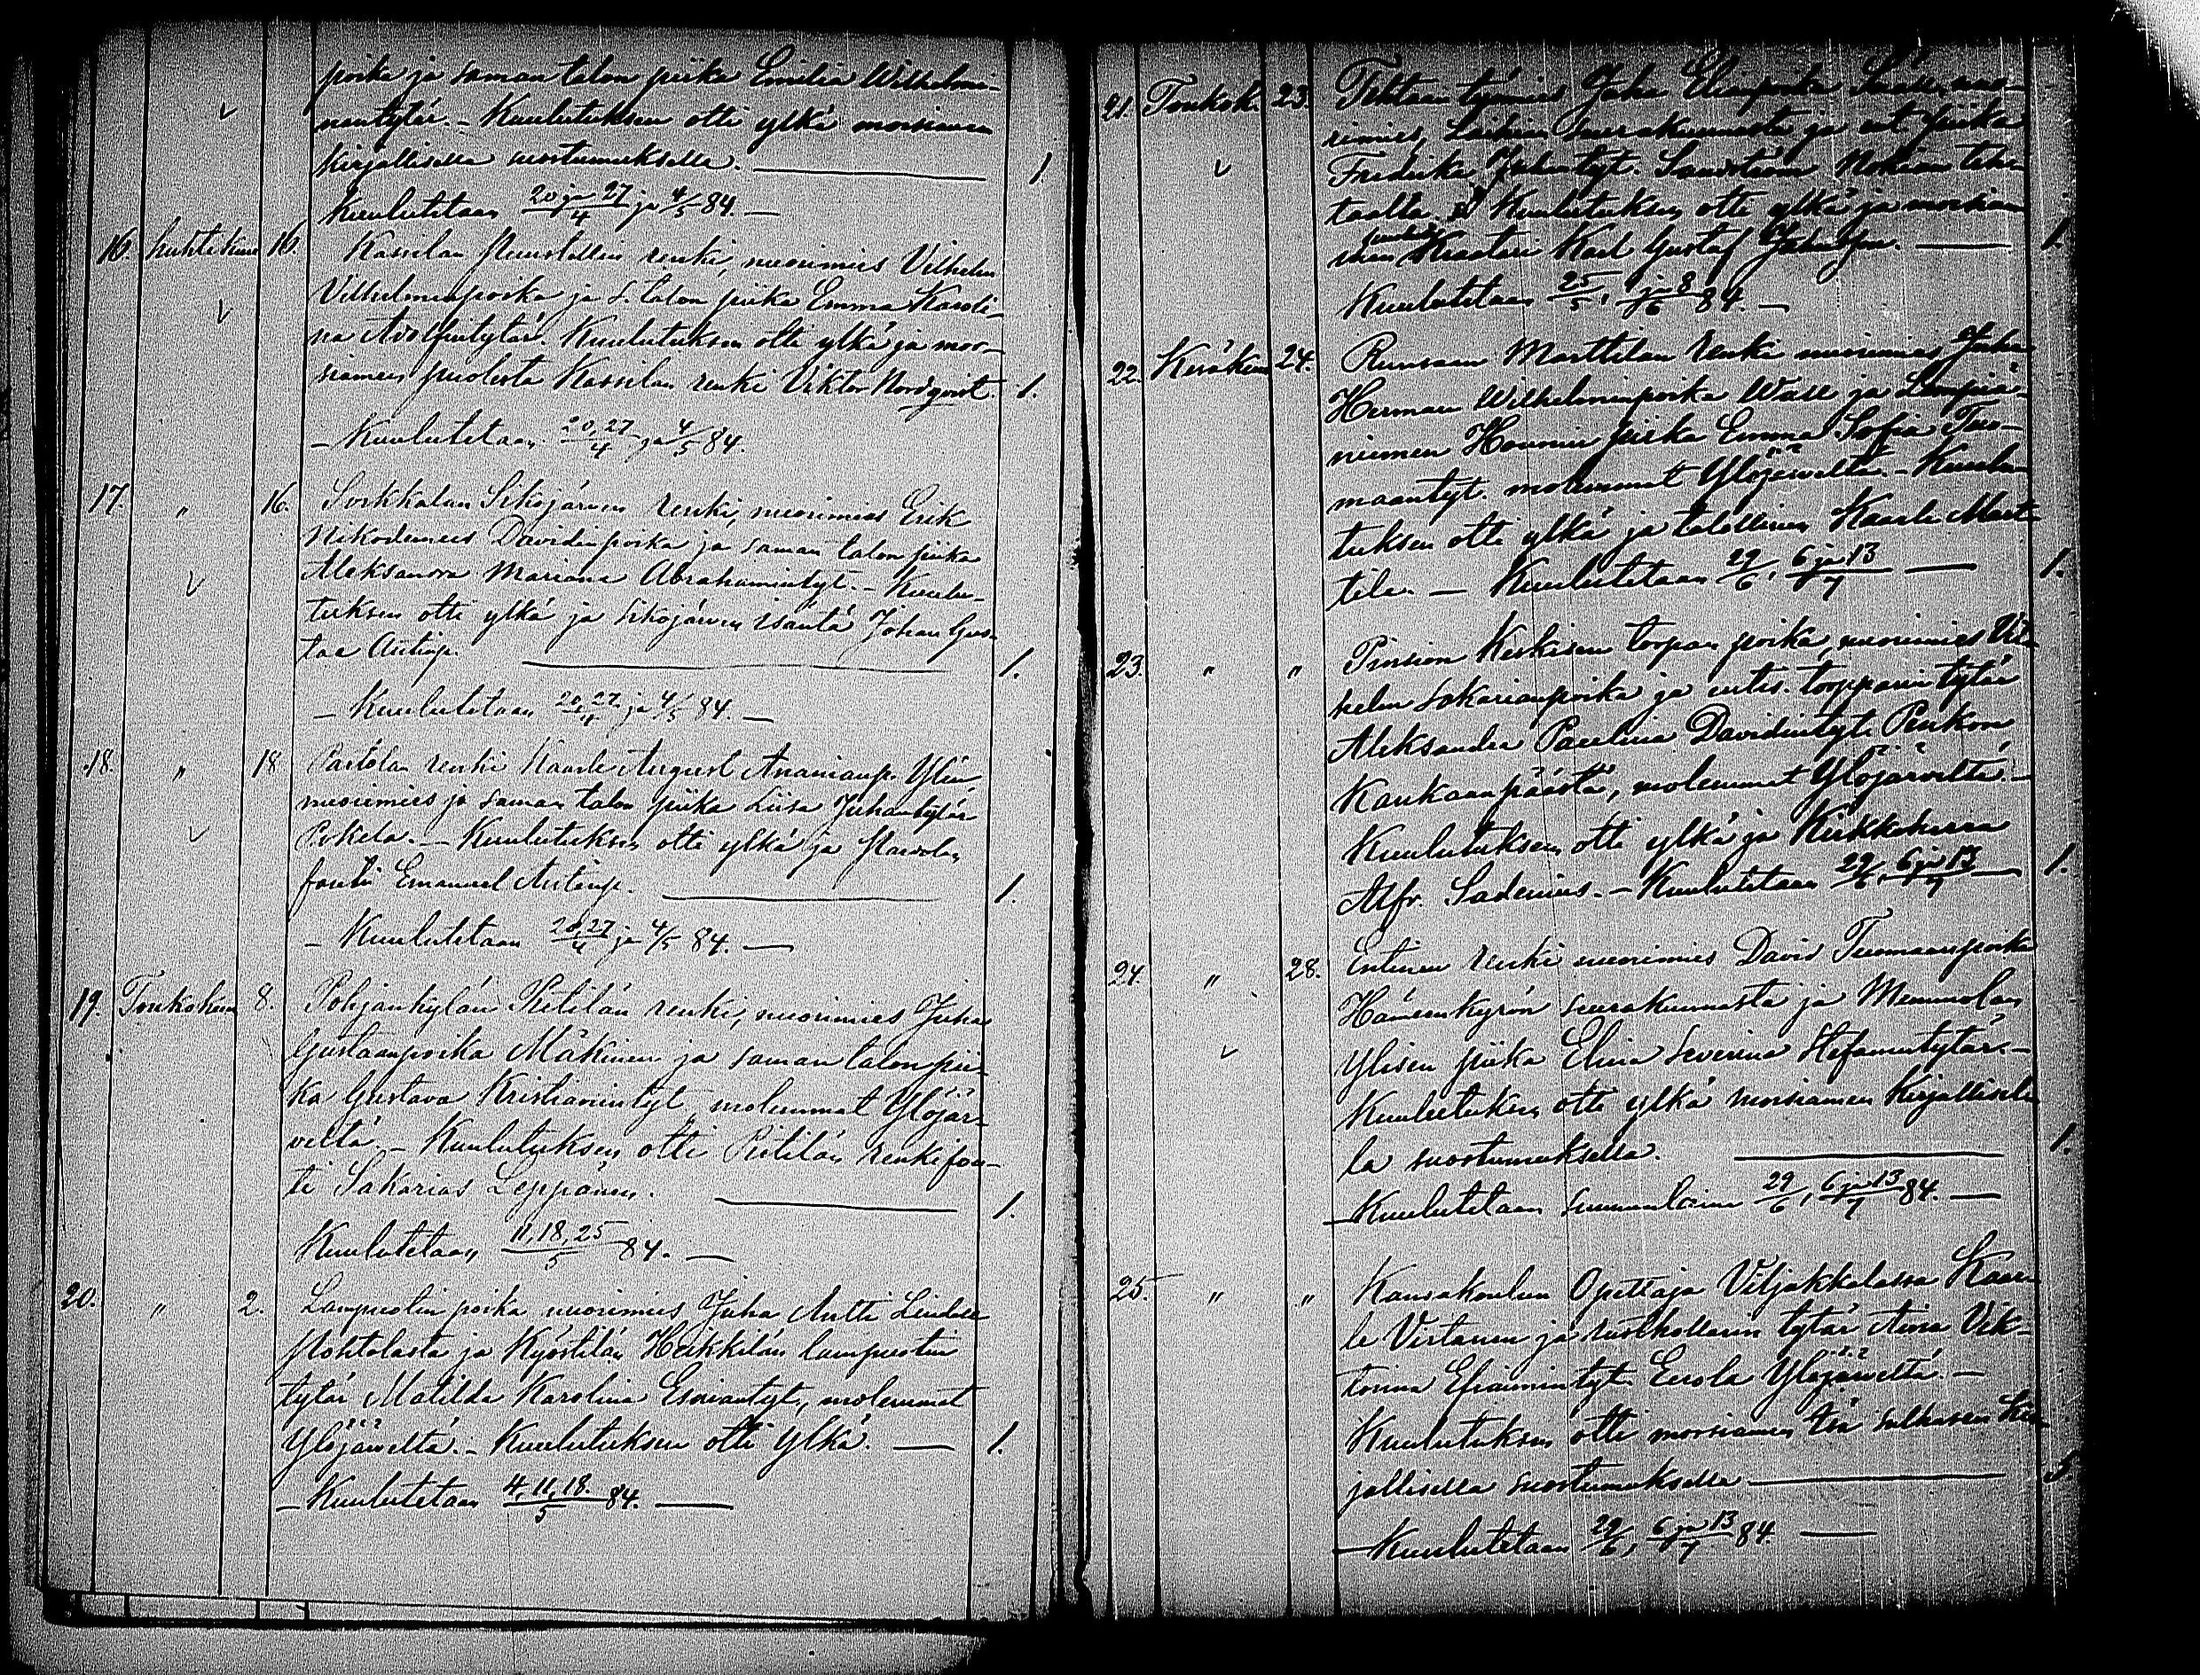 poika ja saman talon piika Emilia Wilhelmi-
nantytär. - Kuulutuksen otti ylkä morsiamen
kirjallisella suostumuksella. 1
Kuulutetaan 20 ja 27/4 ja 4/5 84. -
16. huhtikuu 16. Kassilan renki, nuorimies Vilhelm
Vilhelminpoika ja s. talon piika Emma Karoli-
na Adolfintytär. Kuulutuksen otti ylkä ja mor-
siamen puolesta Kassilan renki Viktor Nordqvist. 1.
- Kuulutetaan 20,27/4 ja 4/5 84.
17. " 16. Sorkkalan Sikojärven renki, nuorimies Erik
Nikodemus Davidinpoika ja saman talon piika
Aleksandra Mariana Abrahamintyt. - Kuulu-
tuksen otti ylkä ja Sikojärven isäntä Johan Gus-
taa Antinp. 1.
- Kuulutetaan 20,27/4 ja 4/5 84. -
18. " 18 renki Kaarle August Ananianp. Ylin
nuorimies ja saman talon piika Liisa Juhantytär
- Kuulutuksen otti ylkä ja
fouti Emanuel Antinp. 1.
- Kuulutetaan 20,27/4 ja 4/5 84. -
19. Toukokuu 8. Pohjankylän renki, nuorimies Juha
Gustaanpoika Mäkinen ja saman talon pii-
ka Gustava Kristianintyt. molemmat Ylöjär-
veltä. - Kuulutuksen otti renkifou-
ti Sakarias Leppänen. 1.
Kuulutetaan 11,18,25/5 84. -
20. " 2. Lampuotin poika nuorimies Juha Antti
ja Kyöstilän Heikkilän lampuotin
tytär Matilda Karolina Esaiantyt., molemmat
Ylöjäweltä. - Kuulutuksen otti ylkä. - 1.
- Kuulutetaan 4,11,18./5 84. -
21. Toukok. 23. Tehtaan työmies Juha Elianpoika nuo-
rimies, seurakunnasta ja ent. piika
Fredrika Juhantyt. Sandström Nokian teh-
taalta. Kuulutuksen otti ylkä ja morsia-
men puolesta Kraatari Karl Gustaf 1.
Kuulutetaan 25/5, 1 ja 8/6 84. -
22. Kesäkuu 24. Runsaan Marttilan renki nuorimies Juha
Herman Wilhelminpoika Wall ja Lempiä-
niemen piika Emma Sofia Tuo-
maantyt. molemmat Ylöjäweltä. - Kuulu-
tuksen otti ylkä ja talollinen Kaarle Mart-
tila. - Kuulutetaan 29/6, 6 ja 13/7 - 1.
23. " " Pinsion Keskisen torpan poika, nuorimies Vil-
helm Sakarianpoika ja entis. torpparin tytär
Aleksandra Paulina Davidintyt. Penkon
Kaukaanpäästä, molemmat Ylöjärveltä. -
Kuulutuksen otti ylkä ja Kirkkoherra
Alfr. Sadenius. - Kuulutetaan 29/6, 6 ja 13/7 - 1.
24. " 28. Entinen renki nuorimies David Tuomaanpoika
Hämeenkyrön seurakunnasta ja
Ylisen piika Elina Severina Stefanintytär. -
Kuulutuksen otti ylkä morsiamen kirjallisel-
la suostumuksella. 1.
- Kuulutetaan sunnuntaina 29/6, 6 ja 13/7 84. -
25. " " Kansakoulun Opettaja Viljakkalassa Kaar-
le Virtanen ja rusthollarin tytär Aina Vik-
toriina Efraimintyt. Eerola Ylöjäweltä. -
Kuulutuksen otti morsiamen isä sulhasen kir-
jallisella suostumuksella 5
- Kuulutetaan 29/6, 6 ja 13/7 84. -